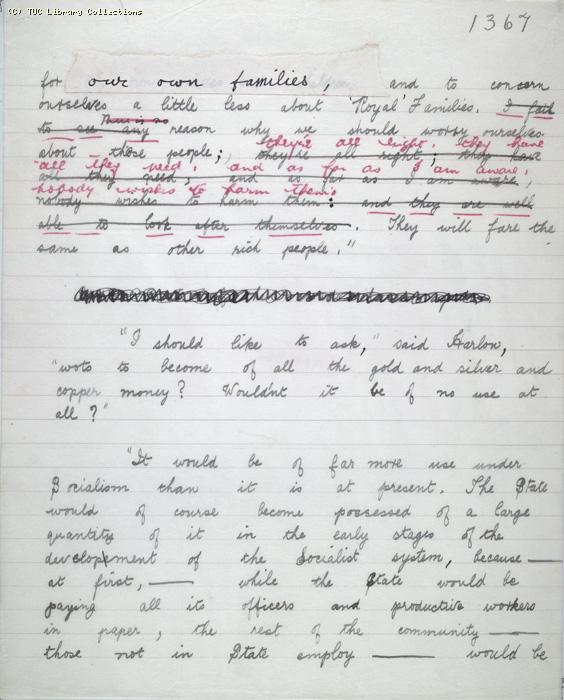 (C) TUC Library Collections
1367
for our own families, and to concern
ourselves a little less about 'Royal' Families. I fail
There is no
to see any reason why we should worry ourselves
about those people; they're all right; they have
they're all right. they have
all they need, and as far as I am aware,
all they need, and as far as I am aware,
nobody wishes to harm them:
nobody wishes to harm them: and they are well
able to look after themselves. They will fare the
same as other rich people."
"I should like to ask," said Harlow,
"wots to become of all the gold and silver and
copper money? Wouldn't it be of no use at
all?"
"It would be of far more use under
Socialism than it is at present. The State
would of course become possessed of a large
quantity of it in the early stages of the
development of the Socialist system, because —
at first, — while the State would be
paying all its officers and productive workers
in paper, the rest of the community —
those not in State employ — would be